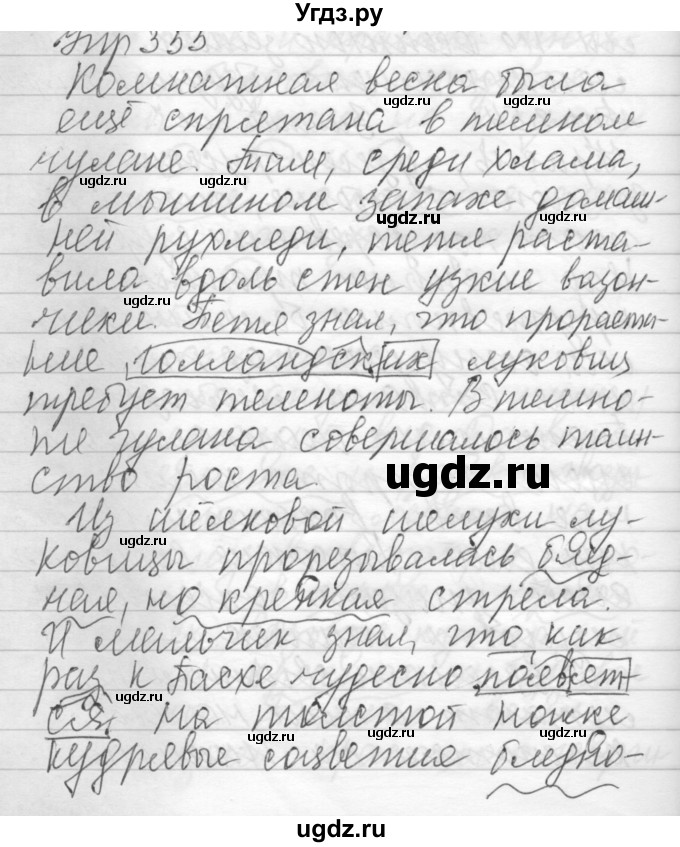 Угдз.ру
Упр 355
Комнатная весна была
ещё спрятана в темном
чулане. Там, среди хлама,
в мышином запахе домаш-
ней рухляди, тетя раста-
вила вдоль стен узкие вазон-
чики. Петя знал, что прораста-
ние голландских луковиц
требует темноты. В темно-
те чулана совершалось таин-
ство роста.
Из шёлковой шелухи лу-
ковицы прорезывалась бляд-
ная, но крепкая стрела.
И мальчик знал, что как
раз к Пасхе чудесно появет-
ся на толстой ножке
кудрявые соцветие бледно-
ugdz.ru
ugdz.ru
ugdz.ru
ugdz.ru
ugdz.ru
ugdz.ru
ugdz.ru
ugdz.ru
ugdz.ru
ugdz.ru
ugdz.ru
ugdz.ru
ugdz.ru
ugdz.ru